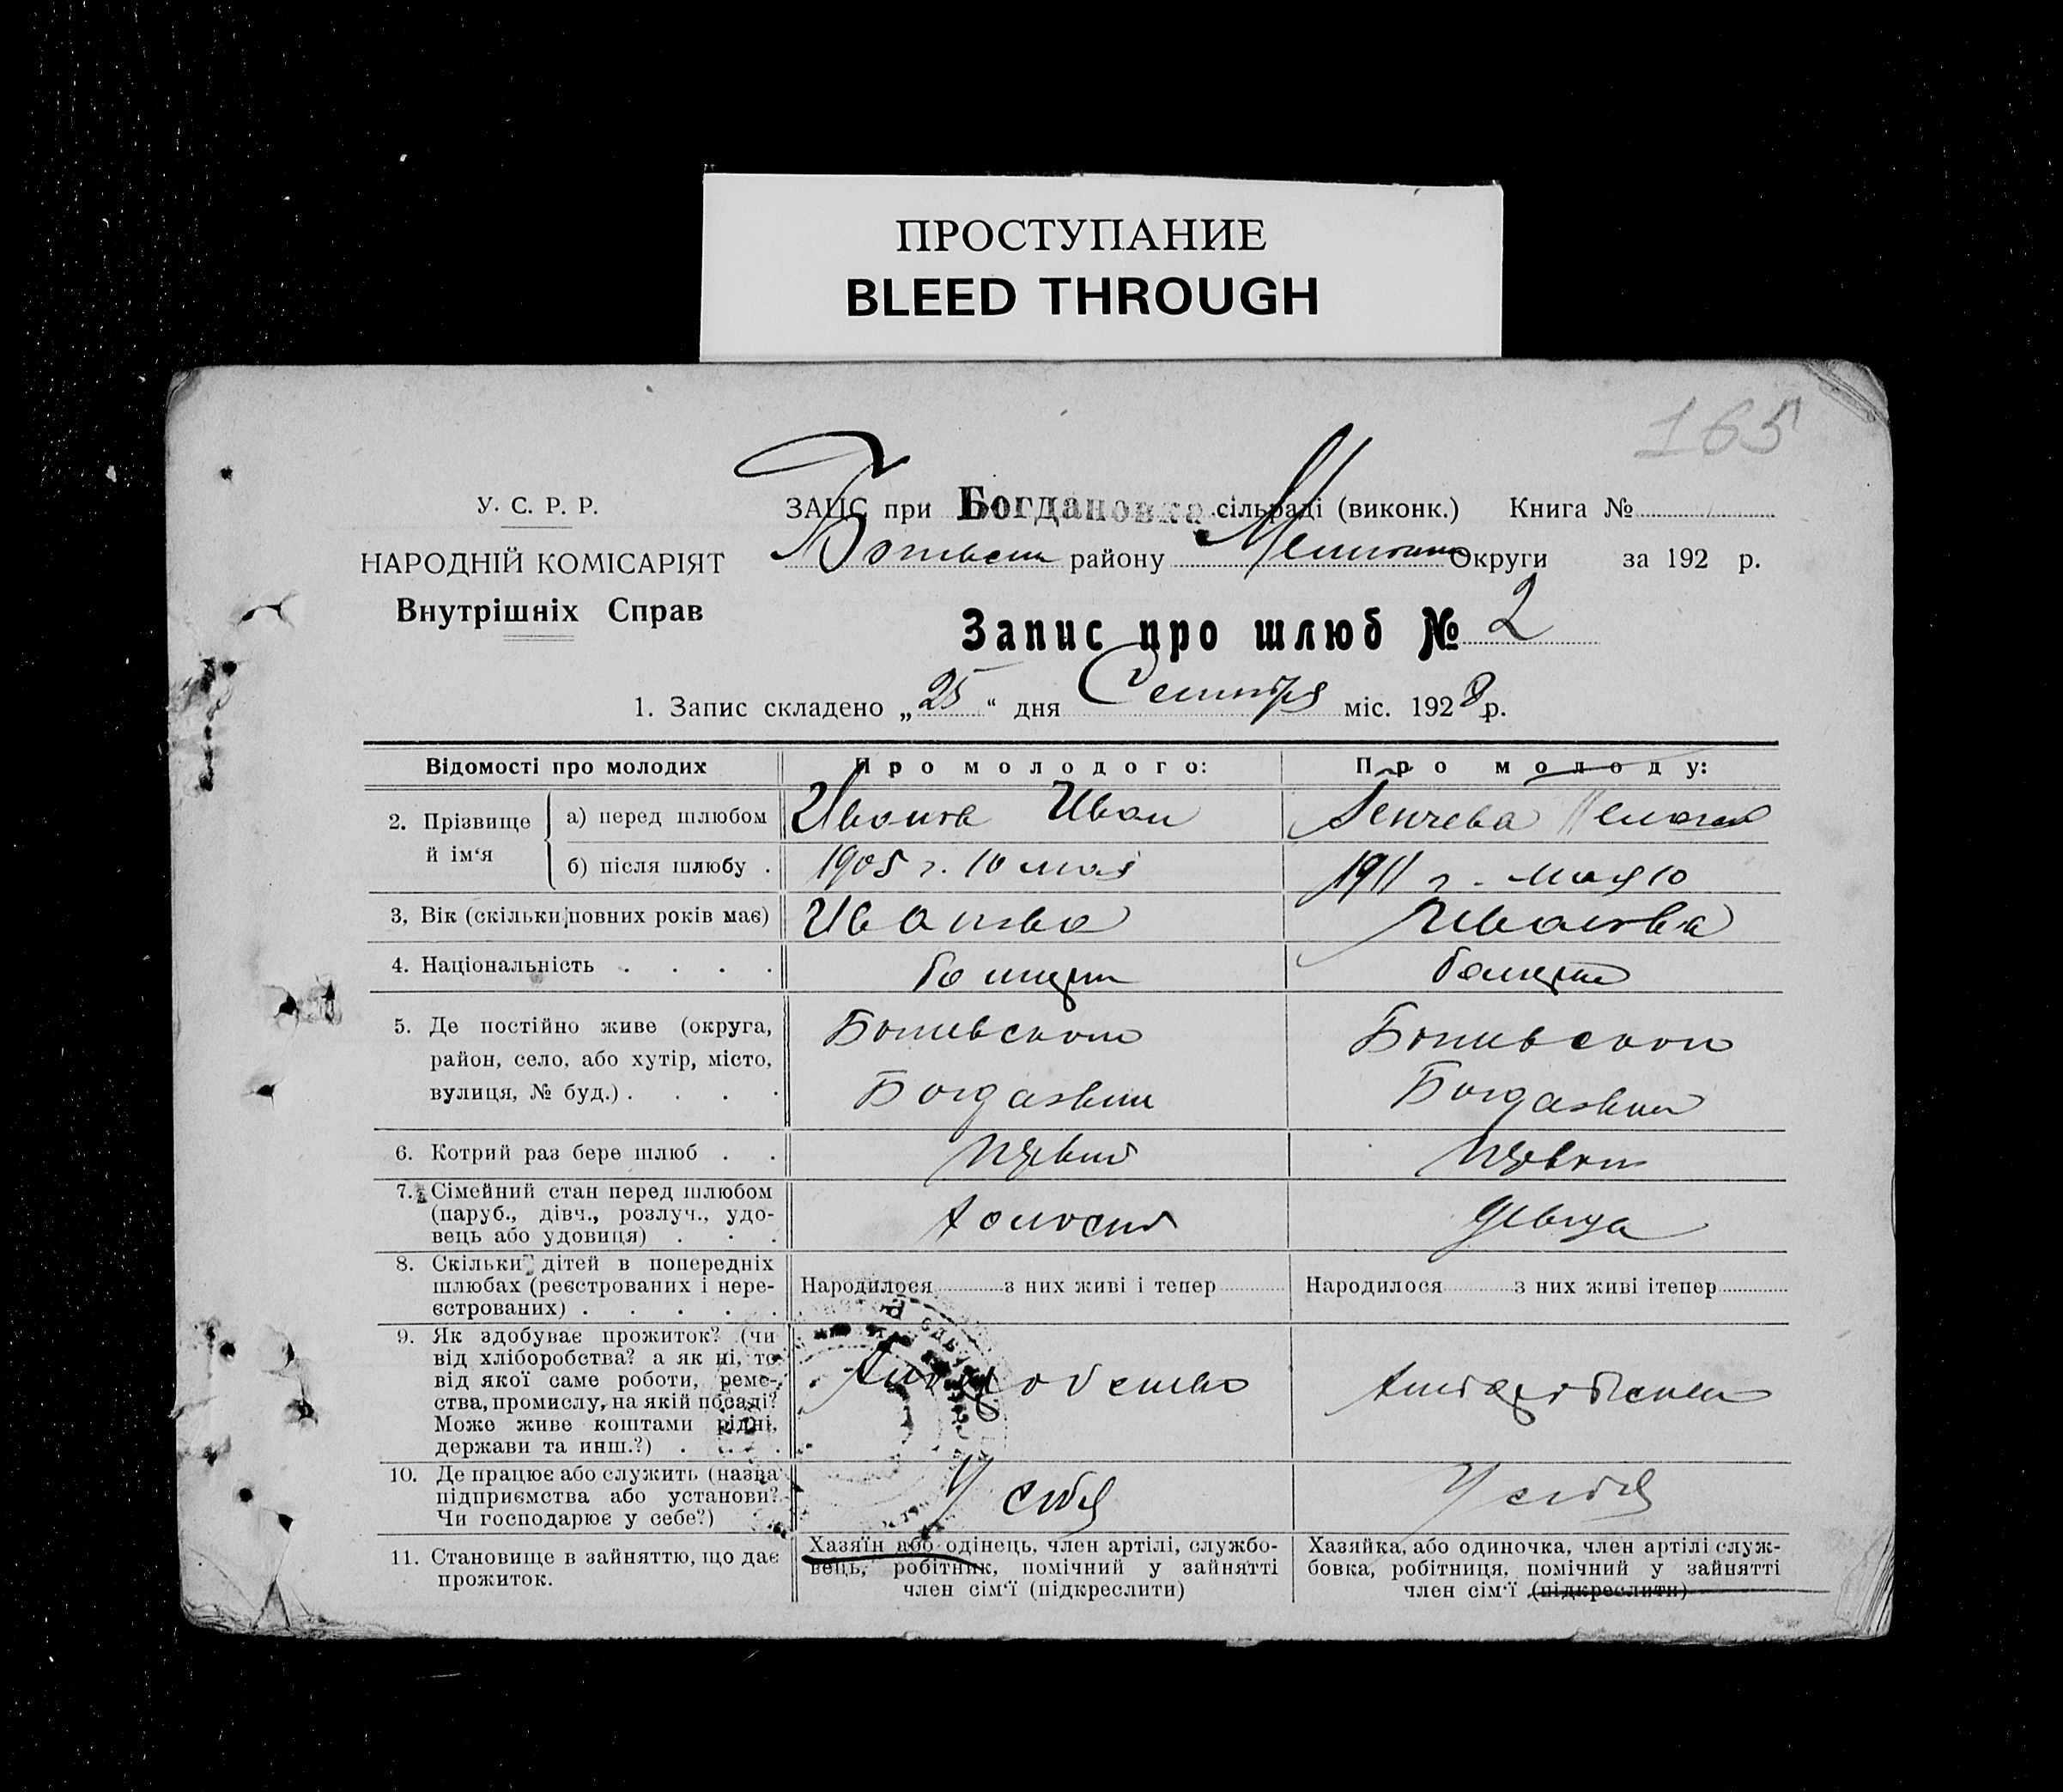 ПРОСТУПАНИЕ
BLEED THROUGH
165
У. С. Р. Р.
НАРОДНІЙ КОМІСАРІЯТ
Внутрішніх Справ
ЗАЦС при Богдановка сільраді (виконк.) Книга №
району Округи за 192 р.
Запис про шлюб № 2
1. Запис складено „25“ дня Сентября міс. 1928 р.
Відомості про молодих Про молодого: Про молоду:
2. Прізвище й ім‘я
а) перед шлюбом Иванов Иван Пенчева Пелагея
б) після шлюбу . 1905 г. 10 мая 1911 г. мая 10
3. Вік (скільки повних років має) Иванова Иванова
4. Національність . . . .
5. Де постійно живе (округа,
район, село, або хутір, місто,
вулиця, № буд.) . . . .
6. Котрий раз бере шлюб . . Первий
7. Сімейний стан перед шлюбом
(паруб., дівч., розлуч., удо-
вець або удовиця) . . . Холостой Девица
8. Скільки дітей в попередніх
шлюбах (реєстрованих і нере-
єстрованих) . . . . .
Народилося з них живі і тепер Народилося з них живі ітепер
9. Як здобуває прожиток? (чи
від хліборобства? а як ні, то
від якої саме роботи, реме-
ства, промислу, на якій посаді?
Може живе коштами рідні,
держави та инш.?) . . .
10. Де працює або служить (назва
підприємства або установи?
Чи господарює у себе?)
У себя У себя
11. Становище в зайняттю, що дає
прожиток.
Хазяїн або одінець, член артілі, службо-
вець, робітник, помічний у зайнятті
член сім‘ї (підкреслити)
Хазяйка, або одиночка, член артілі служ-
бовка, робітниця, помічний у зайнятті
член сім‘ї (підкреслити)